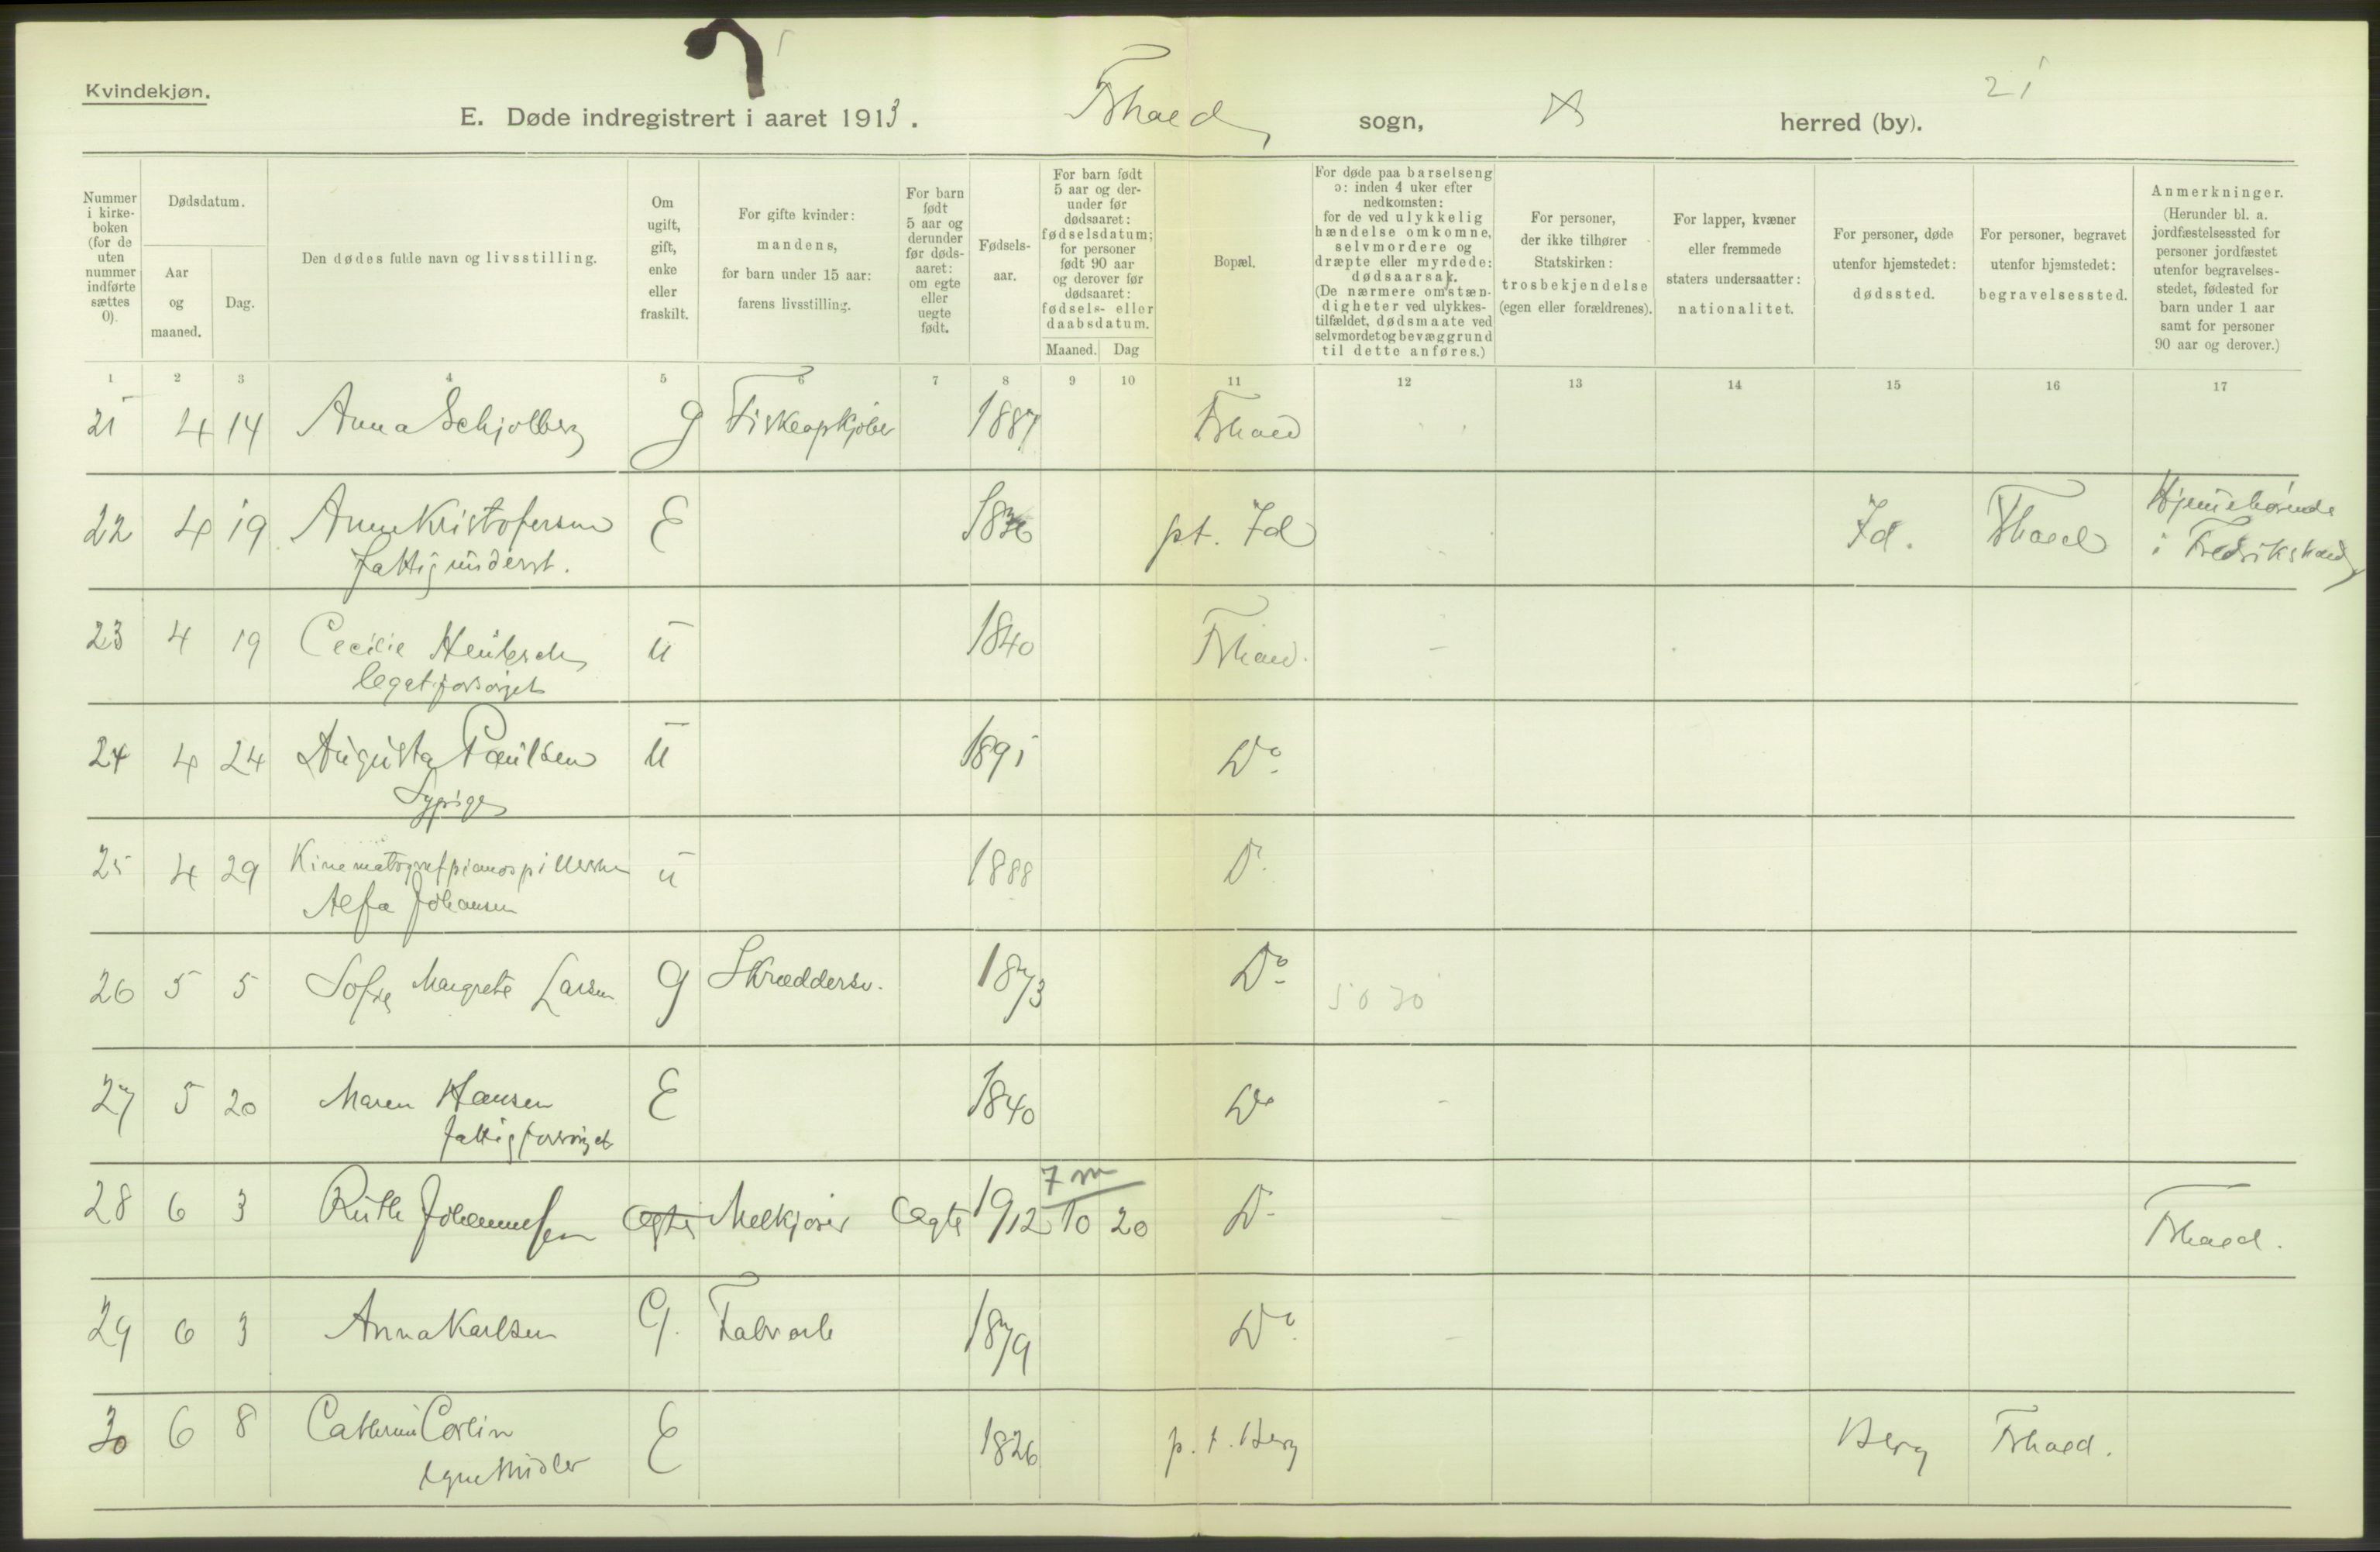 Kvindekjøn.
21
E. Døde indregistrert i aaret 1913. Frhald sogn, herred (by).
Nummer i kirkeboken (for de uten nummer indførte sættes 0).
Dødsdatum.
Aar og maaned.
Dag.
Den dødes fulde navn og livsstilling.
Om ugift, gift, enke eller fraskilt.
For gifte kvinder: mandens, for barn under 15 aar: farens livsstilling.
For barn født 5 aar og derunder før dødsaaret: om egte eller uegte født.
Fødselsaar.
For barn født 5 aar og derunder før dødsaaret: fødselsdatum; for personer født 90 aar og derover før dødsaaret: fødsels- eller daabsdatum.
Maaned. Dag
Bopæl.
For døde paa barselseng ɔ: inden 4 uker efter nedkomsten: for de ved ulykkelig hændelse omkomne, selvmordere og dræpte eller myrdede: dødsaarsak. (De nærmere omstændigheter ved ulykkestilfældet, dødsmaate ved selvmordet og bevæggrund til dette anføres.)
For personer, der ikke tilhører Statskirken: trosbekjendelse (egen eller forældrenes).
For lapper, kvæner eller fremmede staters undersaatter: nationalitet.
For personer, døde utenfor hjemstedet: dødssted.
For personer, begravet utenfor hjemstedet: begravelsessted.
Anmerkninger. (Herunder bl. a. jordfæstelsessted for personer jordfæstet utenfor begravelsesstedet, fødested for barn under 1 aar samt for personer 90 aar og derover.)
1 2 3 4 5 6 7 8 9 10 11 12 13 14 15 16 17
21 4 14 Anna Schjolberg g Fiskeopkjøber 1887 Frhald
22 4 19 Anne Kristofersen E 1836 pt. Id Id. Frhald Hjemehørende
fattigunderst. i Fredrikshald
23 4 19 Cecilie u 1840 Frhald.
legatforsørget
24 4 24 Augusta Paulsen u 1891 Do
Sypige
25 4 29 Kinematografpianospillerske u 1888 Do
Alfa Johansen
26 5 5 Sofie Margrete Larsen g Skræddersv. 1873 Do
5030
27 5 20 Maren Hansen E 1840 Do
fattigforsørget
7 m
28 6 3 Ruth Johannessen egte Melkjører egte 1912 10 20 Do Frhald.
29 6 3 Anna Karlsen G. Fabrarb 1879 Do
30 6 8 Cathrine E 1826 p. t. Berg Berg Frhald.
egne Midler